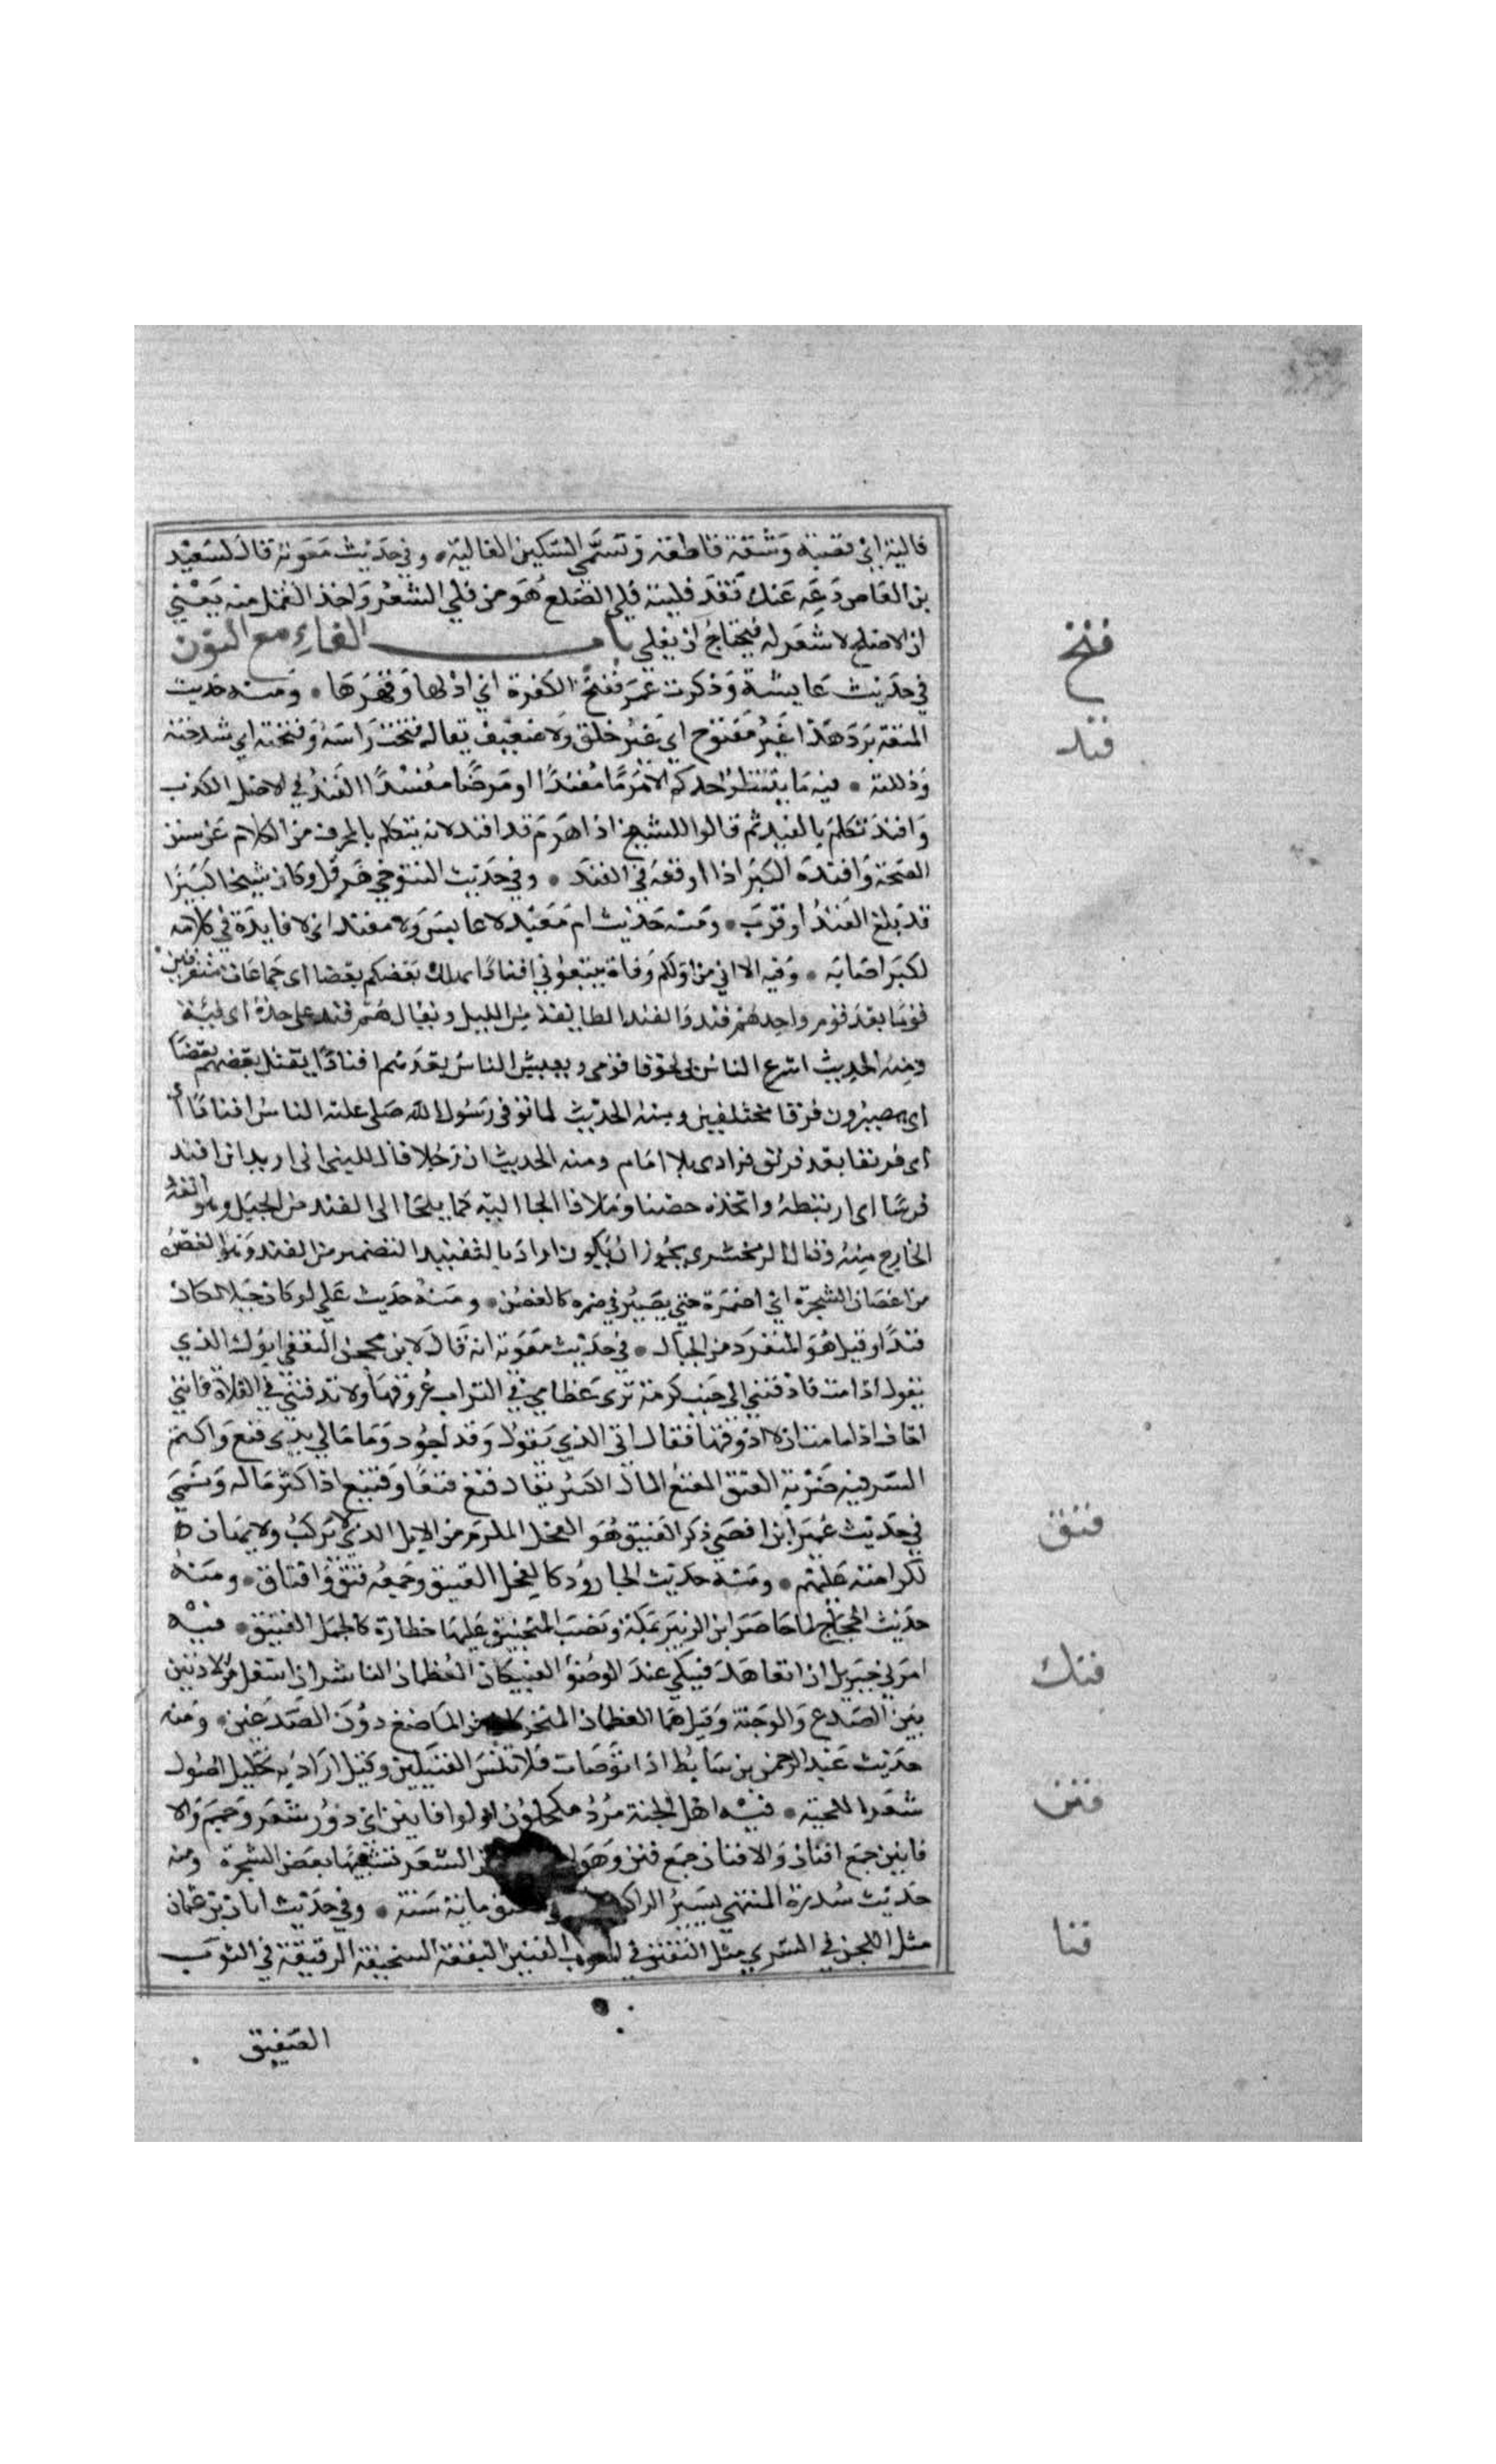 فالية اي قصبة وشقة قاطعة وتسمى السكين الفالية • وفي حديث معوية قال لسعيد
بن العاص دعه عنك فقد فليته فلي الصلع هو من فلي الشعر واخذ القمل منه يعني
ان الاصلع لا شعر له فيحتاج ان يفلى باب الفاء مع النون
فنخ
في حديث عايشة وذكرت عمر ففنخ الكفرة اي اذلها وقهرها • ومنه حديث
المتعة برد هذا غير مفنوخ اي غير خلق ولا ضعيف يقال فنخت راسه وفنخته اي شدخته
فند
وذللته • فيه ما ينتظر احدكم الا هرما مفندا او مرضا مفسدا الفند في الاصل الكذب
وافند تكلم بالفند ثم قالوا للشيخ اذا هرم قد افند لانه يتكلم بالمحرف من الكلام عن سنن
الصحة وافنده الكبر اذا اوقعه في الفند • وفي حديث التنوخي هرقل وكان شيخا كبيرا
قد بلغ الفند او قرب • ومنه حديث ام معبد لا عابس ولا مفند اي لا فايدة في كلامه
لكبر اصابه • وفيه الا اني من اولكم وفاة يتبعوني افنادا يهلك بعضكم بعضا اى جماعات متفرقين
قوما بعد قوم واحدهم فند والفند الطايفة من الليل ويقال هم فند على حدة اى فئة
ومنه الحديث اسرع الناس بي لحوقا قومى ويعيش الناس بعدهم افنادا يقتل بعضهم بعضا
اى يصيرون فرقا مختلفين ومنه الحديث لما توفى رسول الله صلى عليه الناس افنادا
اى فريقا بعد فريق فرادى بلا امام ومنه الحديث ان رجلا قال للنبى انى اريد ان افند
فرسا اى ارتبطه واتخذه حصنا وملاذا الجا اليه كما يلجا الى الفند من الجبل وهو انفه
الخارج منه وقال الزمخشرى يجوز ان يكون اراد بالتفنيد التضمير من الفند وهو الغصن
من اغصان الشجرة اي اضمره حتى يصير في ضمره كالغصن • ومنه حديث علي لو كان جبلا لكان
فندا وقيل هو المنفرد من الجبال • في حديث معوية انه قال لابن محجن الثقفي ابوك الذي
يقول اذا مت فادفنني الى جنب كرمة تروى عظامي في التراب عروقها ولا تدفنني في الفلاة فانني
اخاف اذا ما مت ان لا اذوقها فقال ابي الذي يقول وقد اجود وما مالي بذى فنع واكتم
السر فيه ضربة العنق الفنع المال الكثير يقال فنع فنعا وفنيع اذا كثر ماله ونمى
فنق
في حديث عمير ابن افصى ذكر الفنيق هو الفحل المكرم من الابل الذي لا يركب ولا يهان
لكرامته عليهم • ومنه حديث الجارود كالفحل الفنيق وجمعه فنق وافناق • ومنه
حديث الحجاج لما حاصر ابن الزبير بمكة ونصب المنجنيق عليها خطارة كالجمل الفنيق • فيه
فنك
امرني جبريل ان اتعاهد فنيكي عند الوضوء الفنيكان العظمان الناشزان اسفل من الاذنين
بين الصدع والوجنة وقيل هما العظمان المتحركان من الماضغ دون الصدغين • ومنه
حديث عبد الرحمن بن سابط اذا توضات فلا تنس الفنيكين وقيل اراد به تخليل اصول
فنن
شعر اللحية • فيه اهل الجنة مرد مكحلون اولوا فانين اي ذو شعر وجمم والا
فانين جمع افنان والافنان جمع فنن وهو من الشعر تشبيها بعض الشجرة ومنه
حديث سدرة المنتهى يسير الراكب مائة سنة • وفي حديث ابان بن عثمان
فنا
مثل اللحن في السري مثل التفنين في الثوب التفنين البقعة السخيفة الرقيقة في الثوب
الصفيق